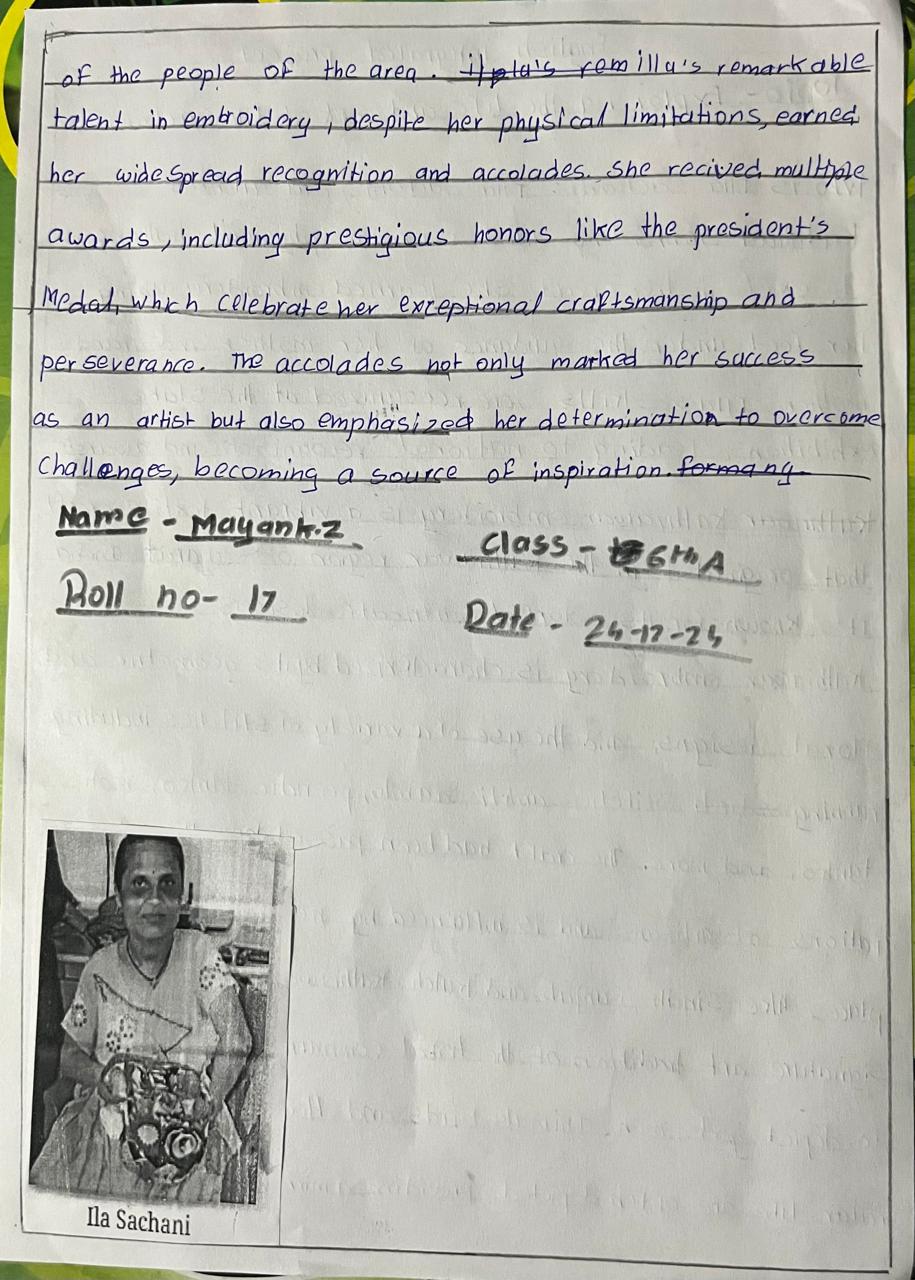 of the people of the area. illa's remarkable
talent in embroidery, despite her physical limitations, earned
her widespread recognition and accolades. She recived multiple
awards, including prestigious honors like the president's
Medal, which celebrate her exceptional craftsmanship and
perseverance. The accolades not only marked her success
as an artist but also emphasized her determination to overcome
challenges, becoming a source of inspiration
Name - Mayank.Z
Class - 6th A
Roll no- 17
Date - 24-12-24
Ila Sachani